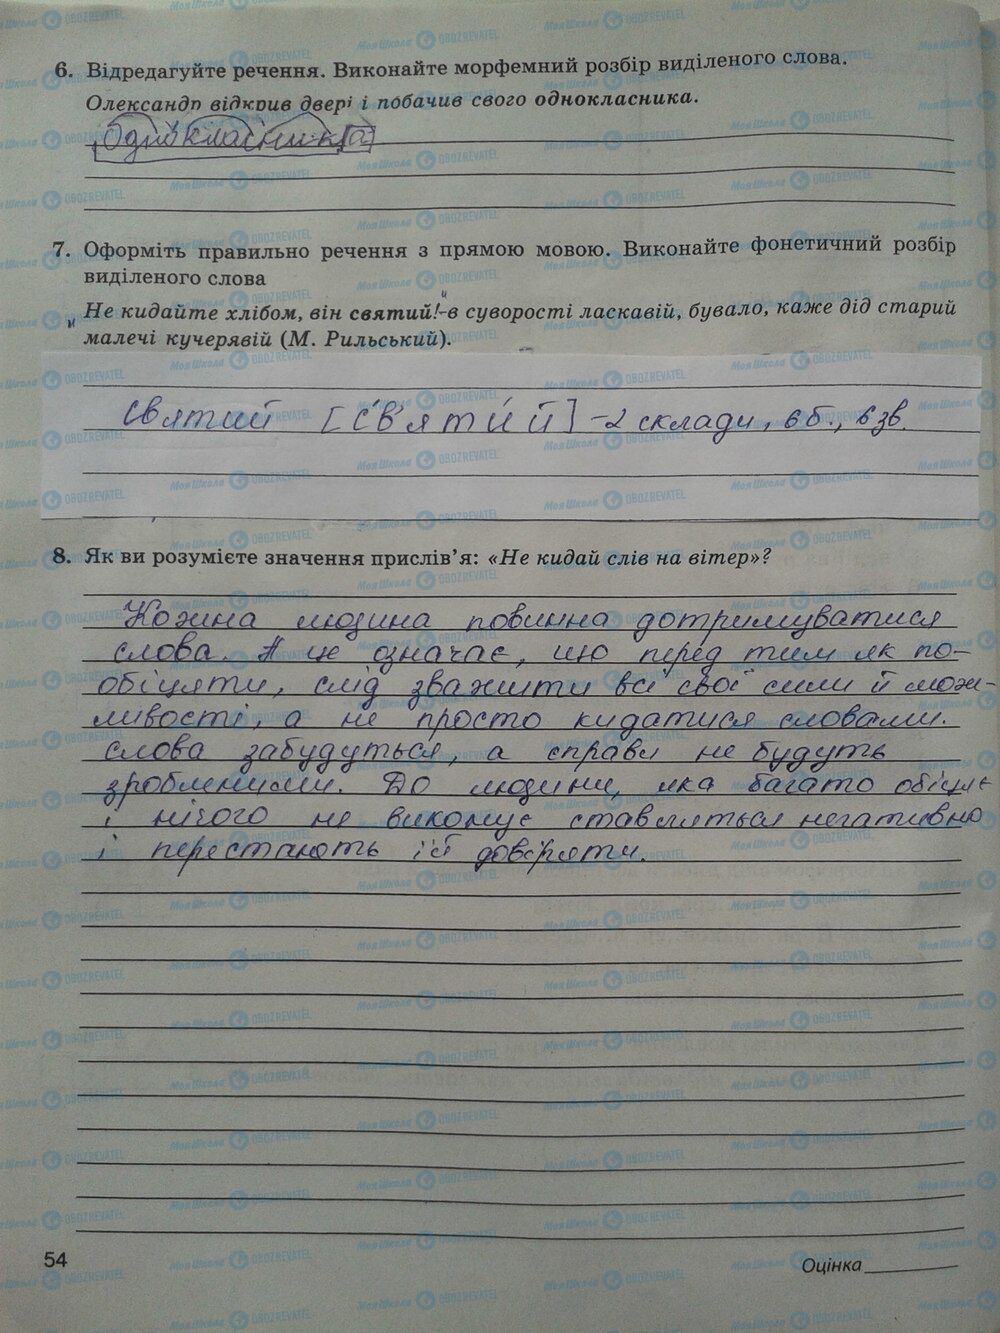 6. Відредагуйте речення. Виконайте морфемний розбір виділеного слова.
Олександр відкрив двері і побачив свого однокласника.
Однокласника
7. Оформіть правильно речення з прямою мовою. Виконайте фонетичний розбір
виділеного слова
Не кидайте хлібом, він святий!-в суворості ласкавій, бувало, каже дід старий
малечі кучерявій (М. Рильський).
святий [с'в'ятий] -2 склади, 6б., 6зв.
8. Як ви розумієте значення прислів'я: «Не кидай слів на вітер»?
Кожна людина повинна дотримуватися
слова. А це означає, що перед тим як по-
обіцяти, слід зважити всі свої сили й мож-
ливості, а не просто кидатися словами.
слова забудуться, а справи не будуть
зробленими. До людини, яка багато обіцяє
і нічого не виконує ставляться негативно
і перестають їй довіряти.
54
Оцінка